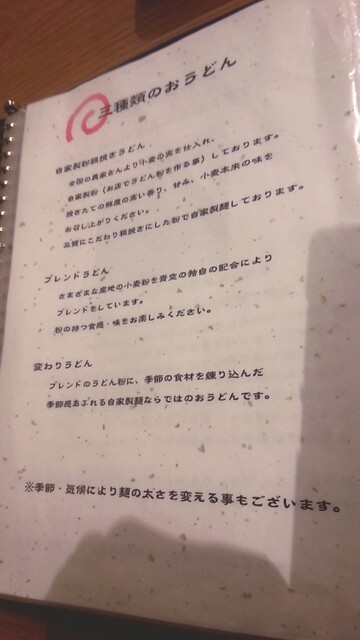 三種類のおうどん
自家製粉粗挽きうどん
全国の農家さんより小麦の実を仕入れ、
自家製粉(お店でうどん粉を作る事)しております。
挽きたての鮮度の高い香り、甘み、小麦本来の味を
お召し上がりください。
品質にこだわり粗挽きにした粉で自家製麺しております。
ブレンドうどん
さまざまな産地の小麦粉を青空の独自の配合により
ブレンドをしています。
粉の持つ食感・味をお楽しみください。
変わりうどん
ブレンドのうどん粉に、季節の食材を練り込んだ
季節感あふれる自家製麺ならではのおうどんです。
※季節・気候により麺の太さを変える事もございます。